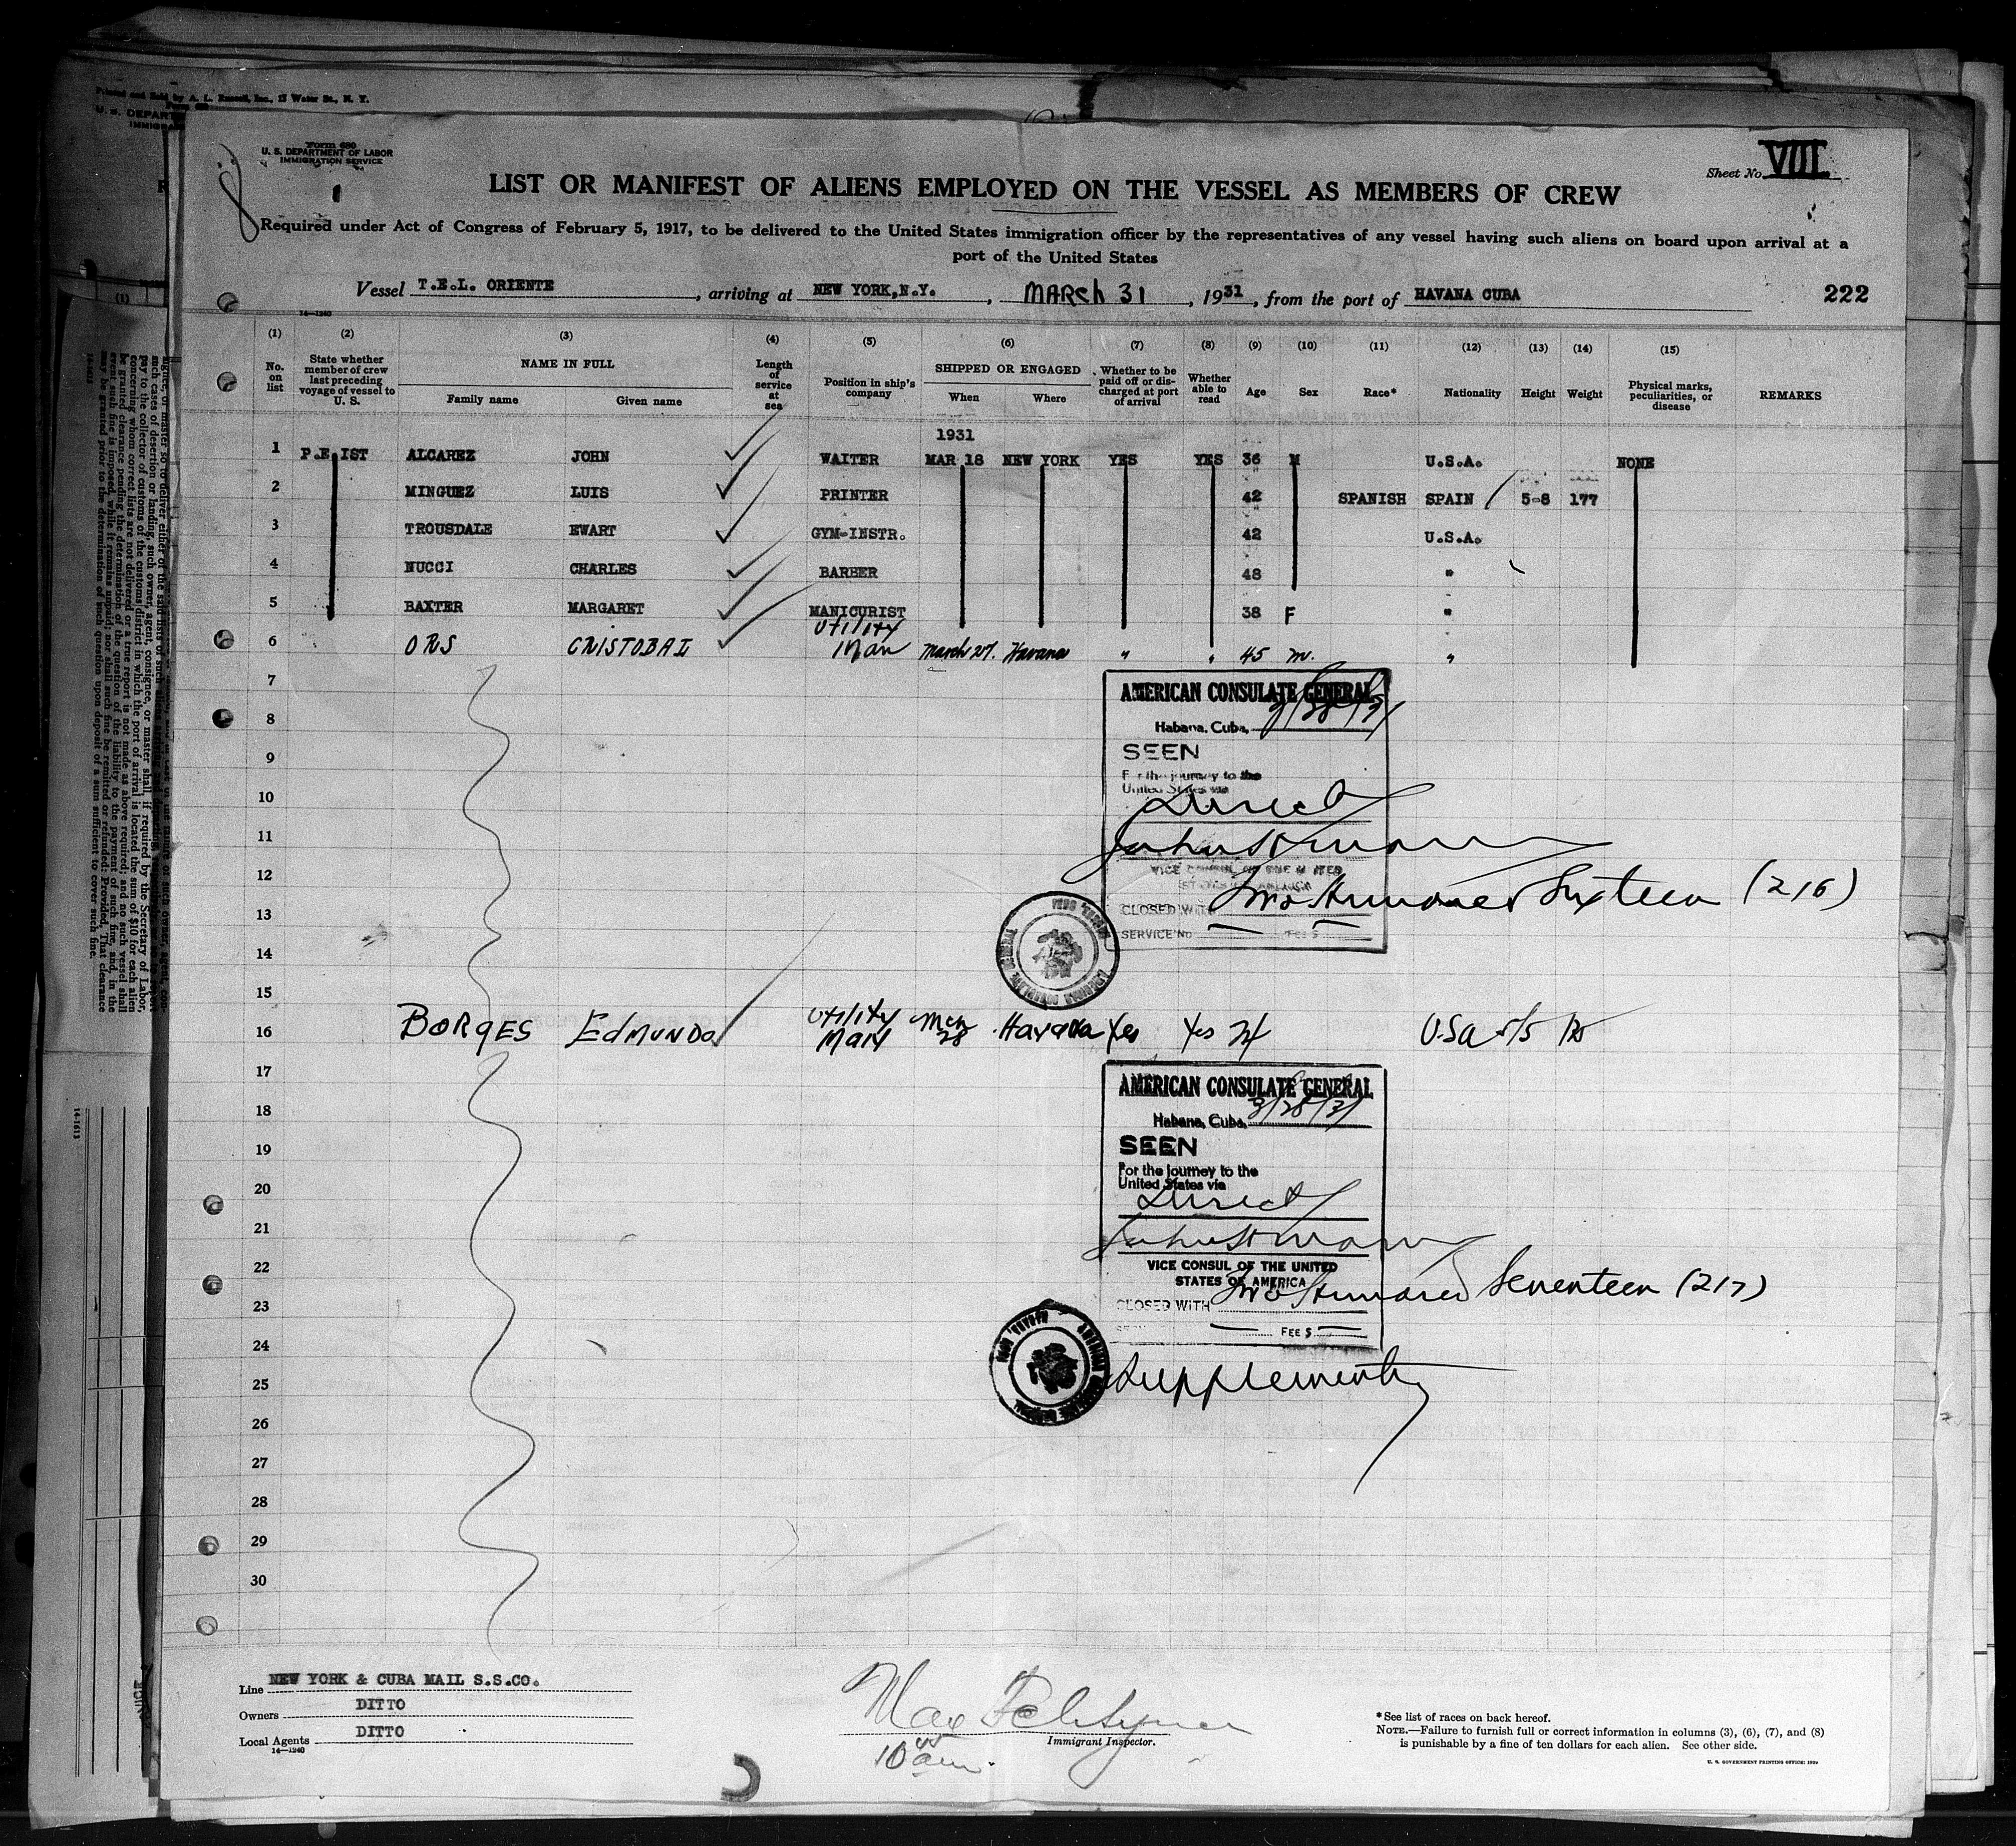 Printed and Sold by A. L. Russell, Inc., 17 Water St., N. Y.
Form 680
U. S. DEPARTMENT OF LABOR
IMMIGRATION SERVICE
Sheet No. VIII
LIST OR MANIFEST OF ALIENS EMPLOYED ON THE VESSEL AS MEMBERS OF CREW
Required under Act of Congress of February 5, 1917, to be delivered to the United States immigration officer by the representatives of any vessel having such aliens on board upon arrival at a
port of the United States
Vessel T.E.L. ORIENTE, arriving at NEW YORK, N.Y., MARCH 31, 1931, from the port of HAVANA CUBA
222
14—1240
(1) (2) (3) (4) (5) (6) (7) (8) (9) (10) (11) (12) (13) (14) (15)
No. on list
State whether member of crew last preceding voyage of vessel to U. S.
NAME IN FULL
Family name Given name
Length of service at sea
Position in ship's company
SHIPPED OR ENGAGED
When Where
Whether to be paid off or discharged at port of arrival
Whether able to read
Age
Sex
Race*
Nationality
Height
Weight
Physical marks, peculiarities, or disease
REMARKS
1931
1 P.E. IST ALCAREZ JOHN WAITER MAR 18 NEW YORK YES YES 36 M U.S.A. NONE
2 MINGUEZ LUIS PRINTER 42 SPANISH SPAIN 5-8 177
3 TROUSDALE EWART GYM-INSTR. 42 U.S.A.
4 NUCCI CHARLES BARBER 48 "
5 BAXTER MARGARET MANICURIST 38 F "
6 ORS CRISTOBAL Utility Man March 27. Havana " " 45 m. "
7
AMERICAN CONSULATE GENERAL
8
Habana, Cuba, 3/28/31
9
SEEN
For the journey to the
United States via
10
Direct
11
12
VICE CONSUL OF THE UNITED
STATES OF AMERICA
CLOSED WITH Two Hundred Sixteen (216)
13
SERVICE No FEE $
14
15
16 BORGES EDMUNDO Utility Man Mch 28 Havana Yes Yes 24 USA 5/5
17
AMERICAN CONSULATE GENERAL
18
Habana, Cuba, 3/28/31
19
SEEN
For the journey to the
United States via
20
Direct
21
22
VICE CONSUL OF THE UNITED
STATES OF AMERICA
23
CLOSED WITH Two Hundred Seventeen (217)
FEE $
24
25
Supplement
26
27
28
29
30
Line NEW YORK & CUBA MAIL S.S.CO.
Owners DITTO
Local Agents DITTO
14—1240
Immigrant Inspector.
10 45 am.
*See list of races on back hereof.
NOTE.—Failure to furnish full or correct information in columns (3), (6), (7), and (8)
is punishable by a fine of ten dollars for each alien. See other side.
U. S. GOVERNMENT PRINTING OFFICE: 1929